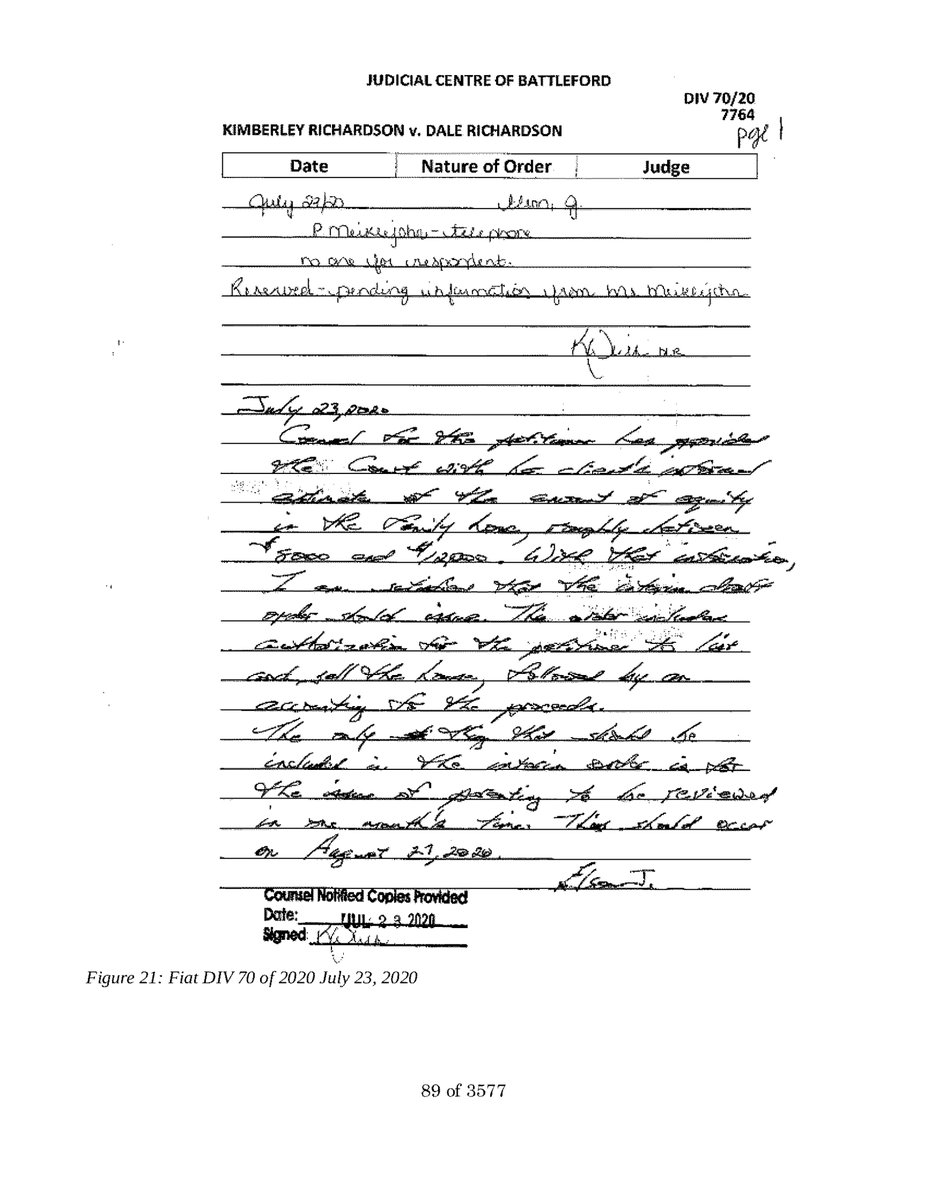 JUDICIAL CENTRE OF BATTLEFORD
DIV 70/20
7764
KIMBERLEY RICHARDSON v. DALE RICHARDSON
pge 1
Date Nature of Order Judge
July 23/20 Elson, J.
P. Meiklejohn - telephone
no one for respondent.
Reserved - pending information from Mr Meiklejohn
July 23, 2020
Counsel for the petitioner has provided
the Court with his client's informal
estimate of the amount of equity
in the family home, roughly between
$8000 and $12000. With that information,
I am satisfied that the interim draft
order should issue. This order includes
authorization for the petitioner to list
and sell the house, followed by an
accounting for the proceeds.
The only thing that should be
included in the interim order is for
the issue of parenting to be reviewed
in one month's time. This should occur
on August 27, 2020.
Elson J.
Counsel Notified Copies Provided
Date: JUL 2 3 2020
Signed
Figure 21: Fiat DIV 70 of 2020 July 23, 2020
89 of 3577